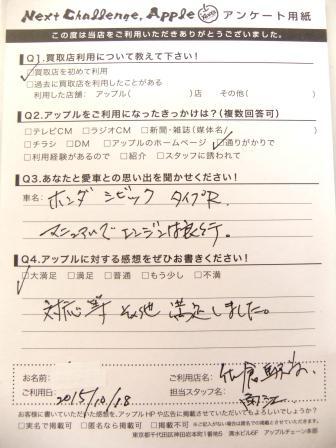 Next Challenge, Apple アンケート用紙
この度は当店をご利用いただきありがとうございました。
Q1.買取店利用について教えて下さい!
□買取店を初めて利用
□過去に買取店を利用したことがある
利用した店舗: アップル( )店 その他( )
Q2.アップルをご利用になったきっかけは?(複数回答可)
□テレビCM □ラジオCM □新聞・雑誌(媒体名/ )
□チラシ □DM □アップルのホームページ □通りがかりで
□利用経験があるので □紹介 □スタッフに誘われて
Q3.あなたと愛車との思い出を聞かせください!
車名: ホンダ シビック タイプR.
マニュアルでエンジンは良く行。
Q4.アップルに対する感想をぜひお書きください!
□大満足 □満足 □普通 □もう少し □不満
対応等 その他 満足しました。
お名前: ご利用店名:
ご利用日: 2015/10/18 担当スタッフ名:
お客様に書いていただいた感想を、アップルHPや広告に掲載させていただいてもよろしいでしょうか?
□実名で掲載可 □匿名なら掲載可 □掲載不可
東京都千代田区神田岩本町1番地5 清水ビル6F アップルチェーン本部